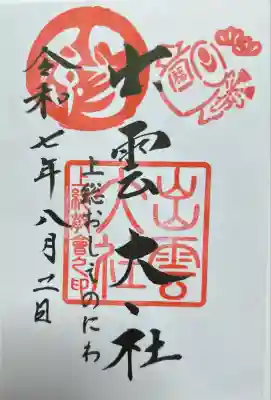 出雲大社
上総おしえのにわ
令和七年八月二日
出雲
大社
上総教會之印